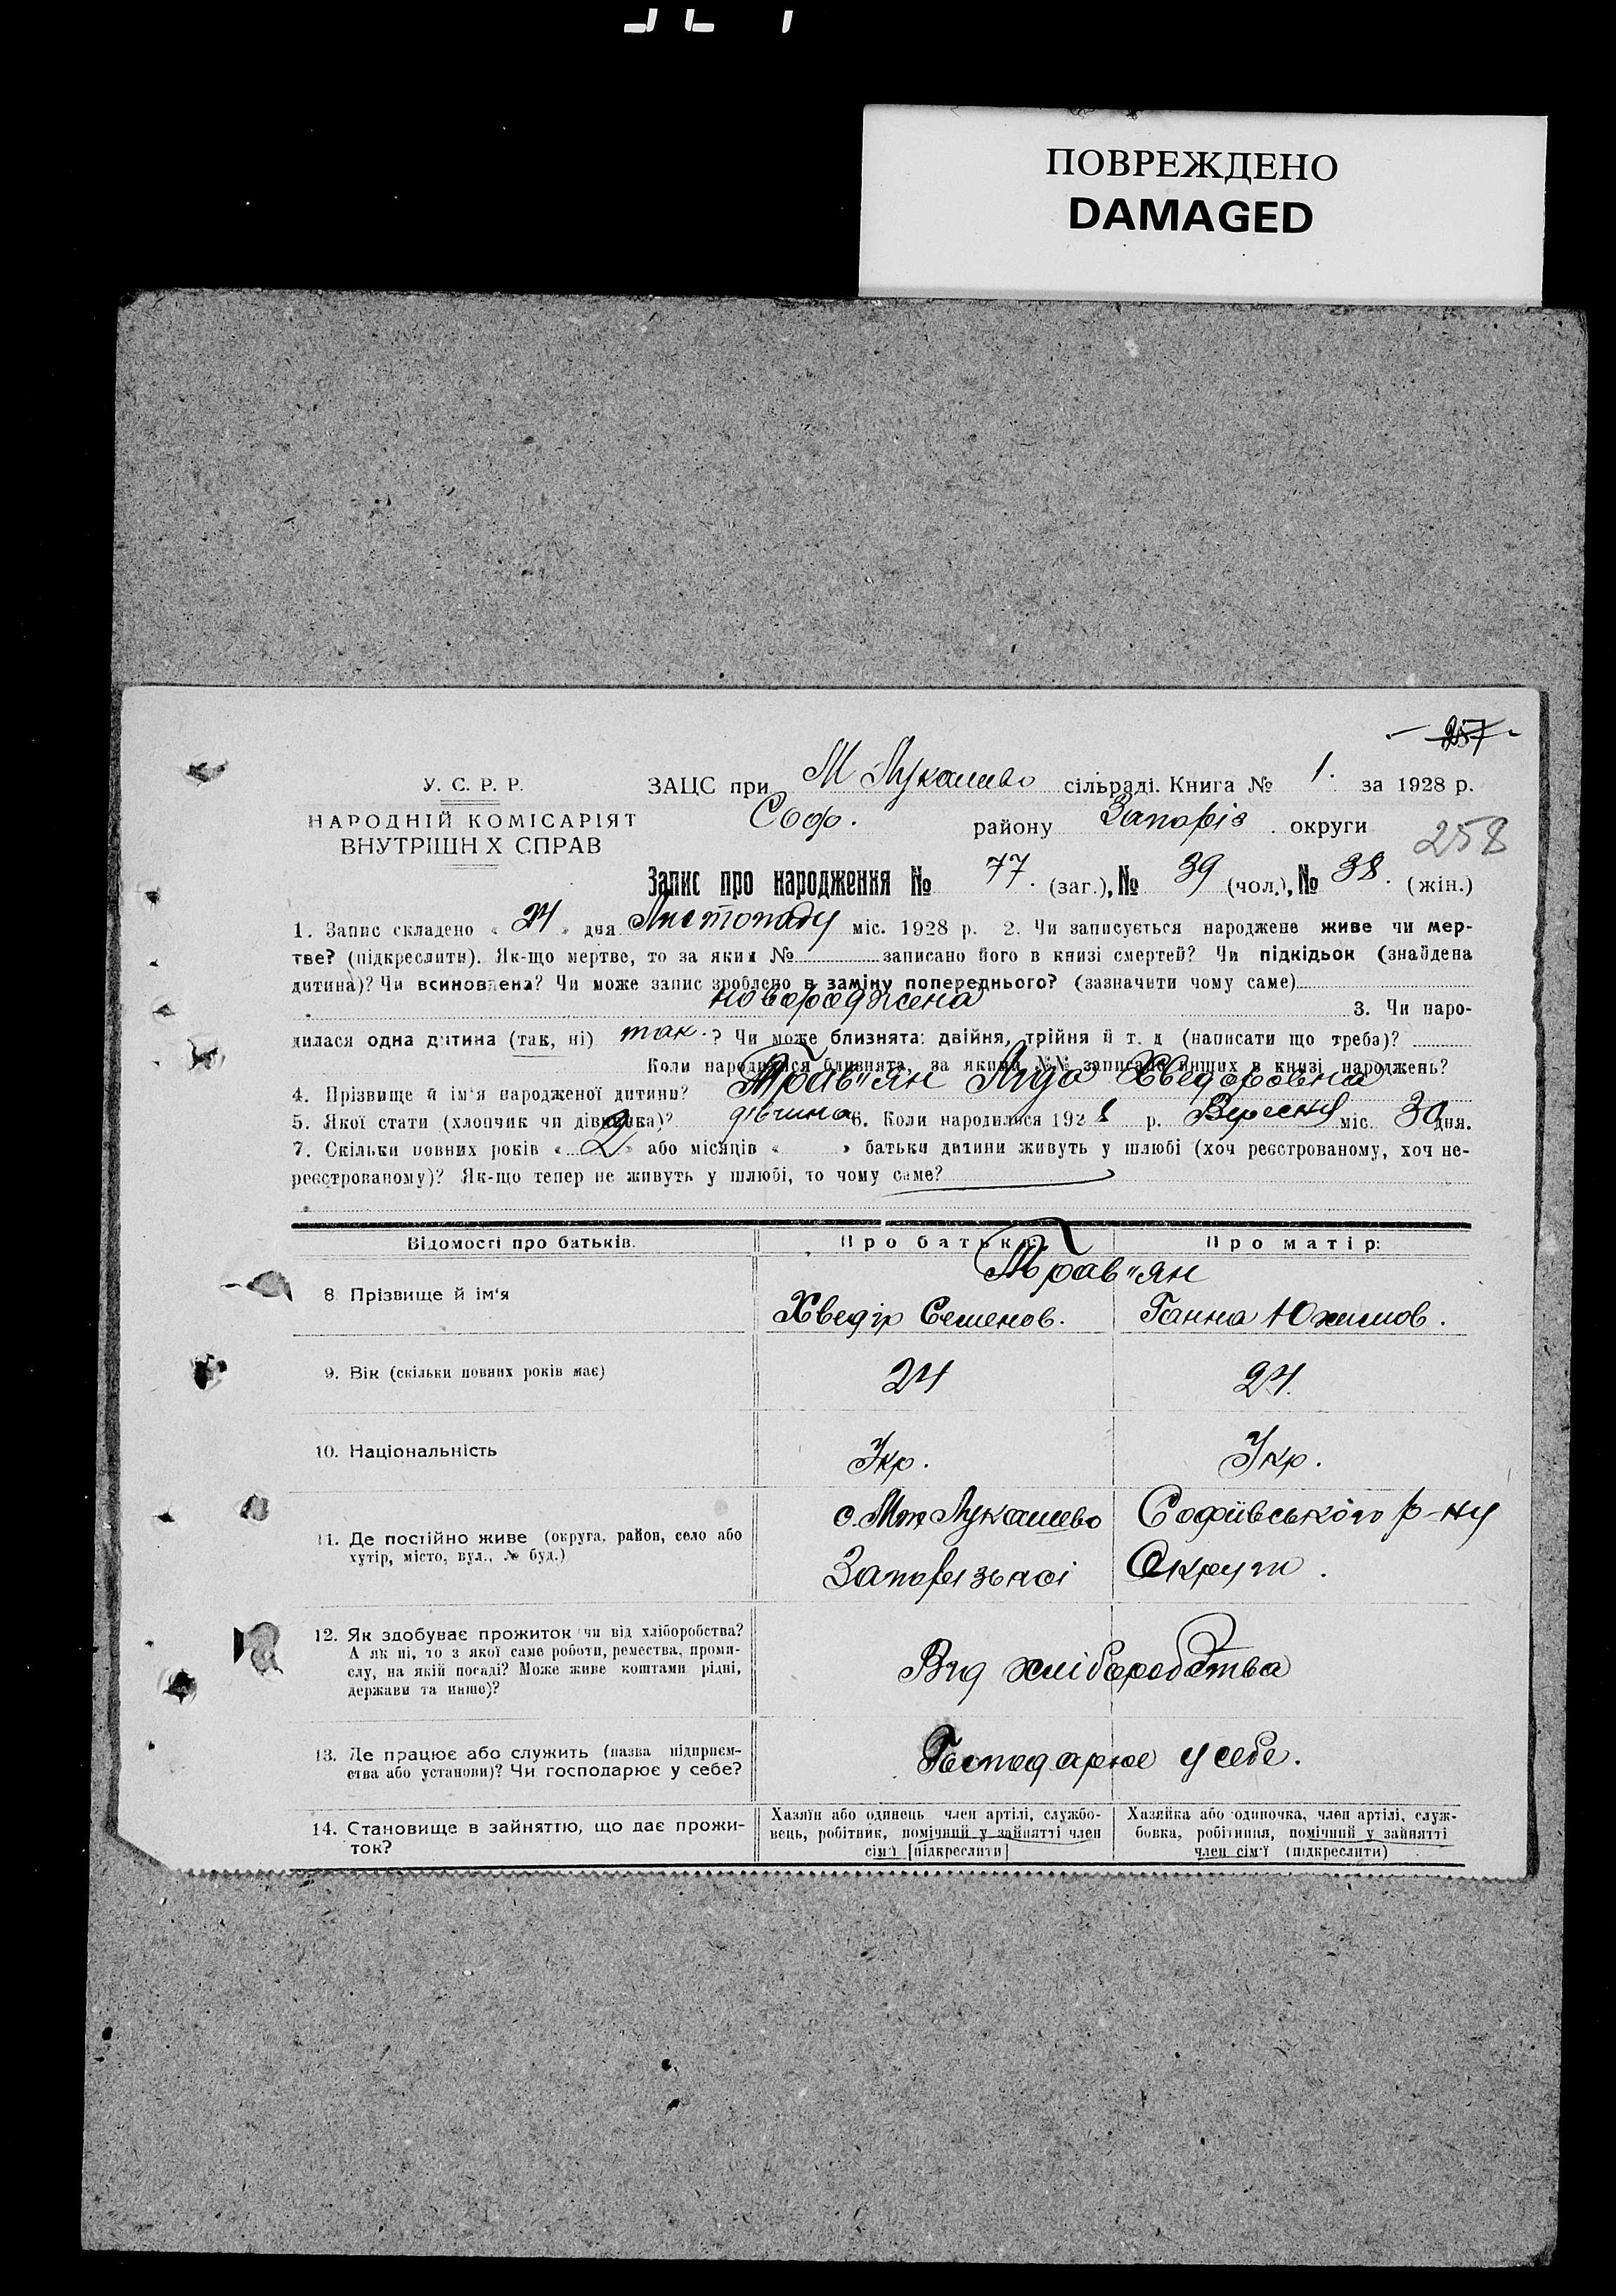 ПОВРЕЖДЕНО
DAMAGED
257
У. С. Р. Р.
НАРОДНІЙ КОМІСАРІЯТ
ВНУТРІШН Х СПРАВ
ЗАЦС при М Лукашево сільраді. Книга № 1. за 1928 р.
Соф. району Запоріз. округи
258
Запис про народження № 77. (заг.), № 39 (чол.), № 38. (жін.)
1. Запис складено « 24 » дня Листопаду міс. 1928 р. 2. Чи записується народжене живе чи мер-
тве? (підкреслити). Як-що мертве, то за яким № записано його в книзі смертей? Чи підкідьок (знайдена
дитина)? Чи всиновлена? Чи може запис зроблено в заміну попереднього? (зазначити чому саме)
новороджена 3. Чи наро-
дилася одна дитина (так, ні) так. ? Чи може близнята: двійня, трійня й т. д (написати що треба)?
Коли народилися близнята, за якими №№ записано инших в книзі народжень?
4. Прізвище й ім'я народженої дитини? Трав"ян Хведоровна
5. Якої стати (хлопчик чи дівчинка)? дівчина 6. Коли народилася 1928 р. Вересня міс. 30 дня.
7. Скільки повних років « 2 » або місяців « » батьки дитини живуть у шлюбі (хоч реєстрованому, хоч не-
реєстрованому)? Як-що тепер не живуть у шлюбі, то чому саме?
Відомості про батьків. Про батька: Про матір:
Трав"ян
8. Прізвище й ім'я Хведір Семенов. Ганна Юхимов.
9. Вік (скільки повних років має) 24 24.
10. Національність Укр. Укр.
с. Лукашево Софіївського р-ну
11. Де постійно живе (округа, район, село або
хутір, місто, вул., № буд.)
Запорізької Округи.
12. Як здобуває прожиток чи від хліборобства?
А як ні, то з якої саме роботи, ремества, проми-
слу, на якій посаді? Може живе коштами рідні,
держави та инше)?
Від хліборобства
13. Де працює або служить (назва підприєм-
ства або установи)? Чи господарює у себе?
Господарює у себе.
14. Становище в зайняттю, що дає прожи-
ток?
Хазяїн або одинець член артілі, службо-
вець, робітник, помічний у зайнятті член
сім'ї [підкреслити]
Хазяйка або одиночка, член артілі, служ-
бовка, робітниця, помічний у зайнятті
член сім'ї (підкреслити)